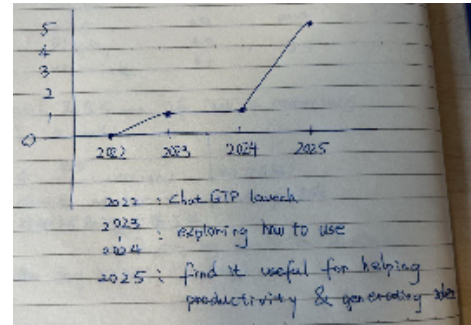 5
4
3
2
1
0
2022 2023 2024 2025
2022 : Chat GTP launch
2023
2024 : exploring how to use
2025 : find it useful for helping
productivity & generating